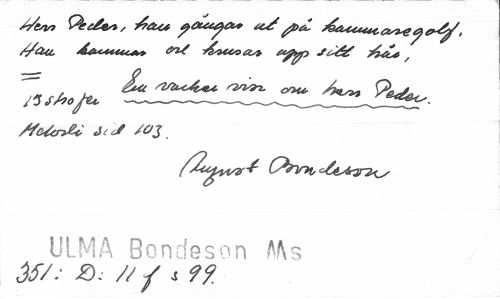 Herr Peder, han gångar ut på kammaregolf.
Han kammar och krusar upp sitt hår,
=
13 strofer En vacker visa om herr Peder.
Melodi sid 103.
August Bondeson
ULMA Bondeson Ms
351: D: 11 f s 99.